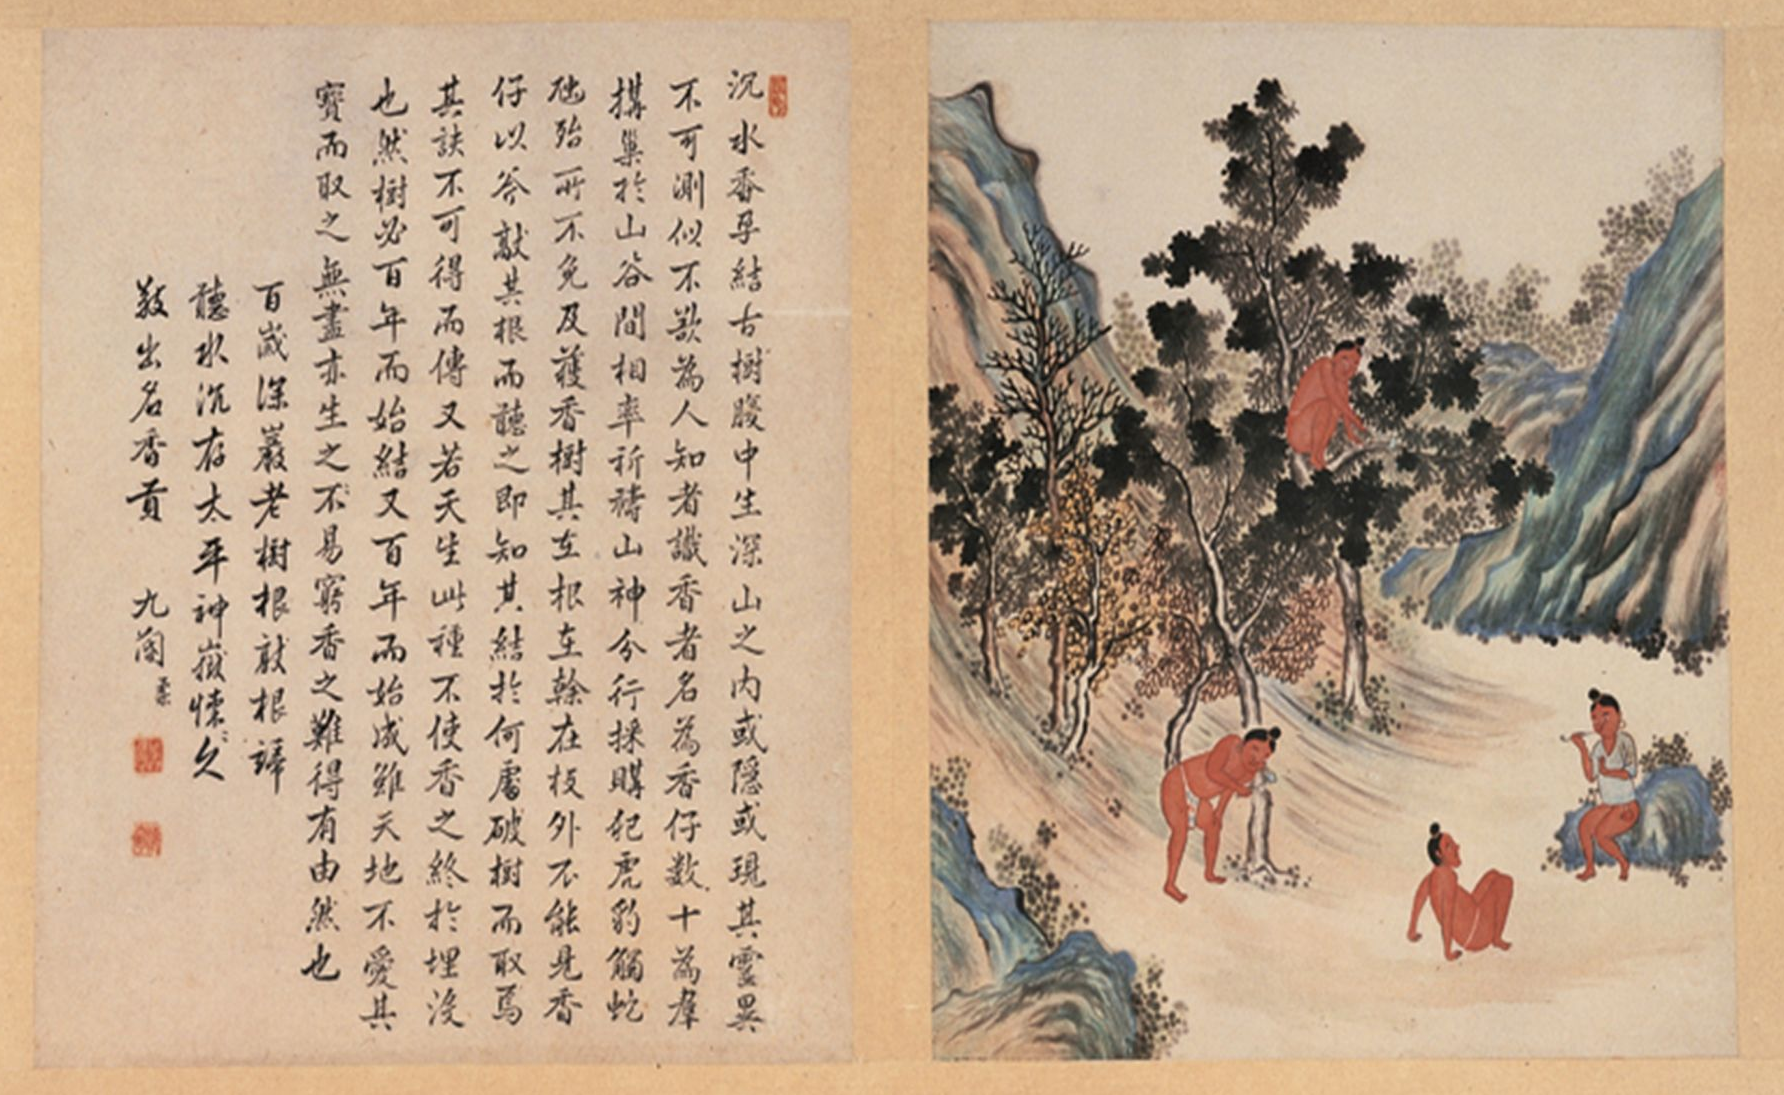 沉水香孕結古樹腹中生深山之內或隱或現其靈異
不可測似不欲為人知者識香者名為香仔數十為羣
搆巢於山谷間相率祈禱山神分行採購犯虎豹觸虵
虺殆所不免及獲香樹其在根在榦在枝外不能見香
仔以斧敲其根而聽之即知其結於何處破樹而取焉
其訣不可得而傳又若天生此種不使香之終於埋沒
也然樹必百年而始結又百年而始成雖天地不愛其
寶而取之無盡亦生之不易窮香之難得有由然也
百歲深巖老樹根敲根諦
聽水沉存太平神嶽懷〻久
敎出名香貢 九蘭